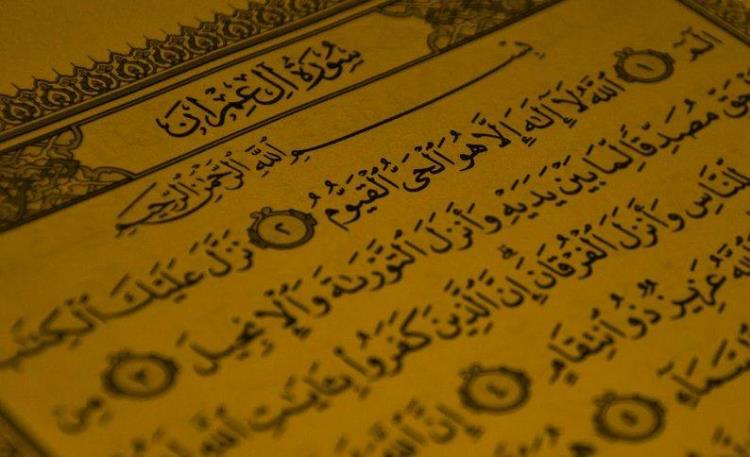 سُورَةُ آلِ عِمْرَانَ
بِسْمِ ٱللَّهِ ٱلرَّحْمَٰنِ ٱلرَّحِيمِ
الٓمٓ ١ ٱللَّهُ لَآ إِلَٰهَ إِلَّا هُوَ ٱلْحَىُّ ٱلْقَيُّومُ ٢ نَزَّلَ عَلَيْكَ ٱلْكِتَٰبَ
مُصَدِّقًا لِّمَا بَيْنَ يَدَيْهِ وَأَنزَلَ ٱلتَّوْرَىٰةَ وَٱلْإِنجِيلَ ٣ مِن
لِّلنَّاسِ وَأَنزَلَ ٱلْفُرْقَانَ إِنَّ ٱلَّذِينَ كَفَرُوا۟ بِـَٔايَٰتِ ٱللَّهِ
عَزِيزٌ ذُو ٱنتِقَامٍ ٤ إِنَّ ٱللَّهَ
ٱلسَّمَآءِ ٥ هُوَ